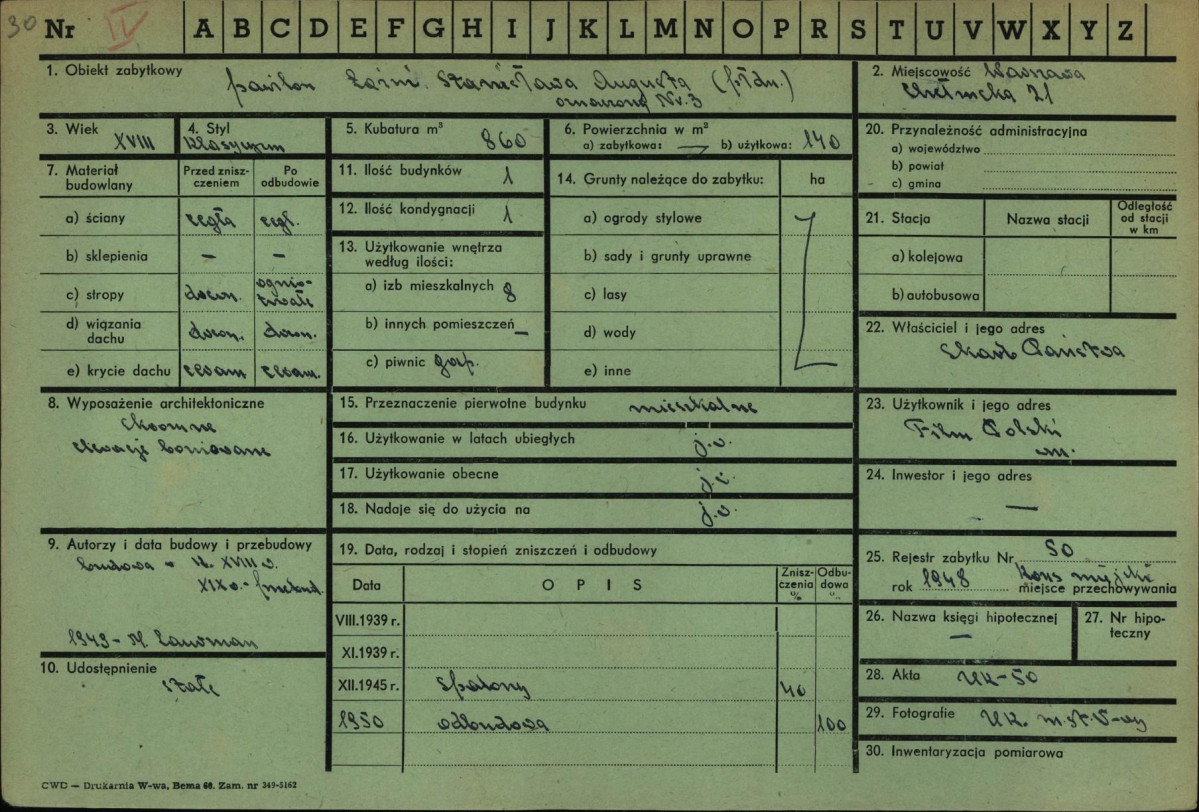 30 Nr IV A B C D E F G H I J K L M N O P R S T U V W X Y Z
1. Obiekt zabytkowy
pawilon Łaźni Stanisława Augusta (płdn.)
oznaczony Nr. 3
2. Miejscowość Warszawa
Chełmska 21
3. Wiek
XVIII
4. Styl
klasycyzm
5. Kubatura m³
860
6. Powierzchnia w m²
a) zabytkowa: — b) użytkowa: 140
7. Materiał budowlany
Przed zniszczeniem
Po odbudowie
a) ściany cegła cegł.
b) sklepienia — —
c) stropy drewn. ognio-
trwałe
d) wiązania dachu drewn. drewn.
e) krycie dachu
8. Wyposażenie architektoniczne
skromne
elewacje boniowane
9. Autorzy i data budowy i przebudowy
budowa - k. XVIII w.
XIX w. - przebud.
1949 - M.
10. Udostępnienie
stałe
11. Ilość budynków 1
12. Ilość kondygnacji 1
13. Użytkowanie wnętrza
według ilości:
a) izb mieszkalnych 8
b) innych pomieszczeń —
c) piwnic
14. Grunty należące do zabytku: ha
a) ogrody stylowe
b) sady i grunty uprawne
c) lasy
d) wody
e) inne
15. Przeznaczenie pierwotne budynku mieszkalne
16. Użytkowanie w latach ubiegłych j.w.
17. Użytkowanie obecne j.w.
18. Nadaje się do użycia na j.w.
19. Data, rodzaj i stopień zniszczeń i odbudowy
Data O P I S Znisz-
czenia
% Odbu-
dowa
%
VIII.1939 r.
XI.1939 r.
XII.1945 r. spalony 40
1950 odbudowa 100
20. Przynależność administracyjna
a) województwo
b) powiat
c) gmina
21. Stacja Nazwa stacji Odległość
od stacji
w km
a) kolejowa
b) autobusowa
22. Właściciel i jego adres
Skarb Państwa
23. Użytkownik i jego adres
Film Polski
24. Inwestor i jego adres
—
25. Rejestr zabytku Nr 50
rok 1948 Kons miejski
miejsce przechowywania
26. Nazwa księgi hipotecznej
—
27. Nr hipo-
teczny
28. Akta UK-50
29. Fotografie UK. m.st. W-wy
30. Inwentaryzacja pomiarowa
CWD — Drukarnia W-wa, Bema 60. Zam. nr 349-5162